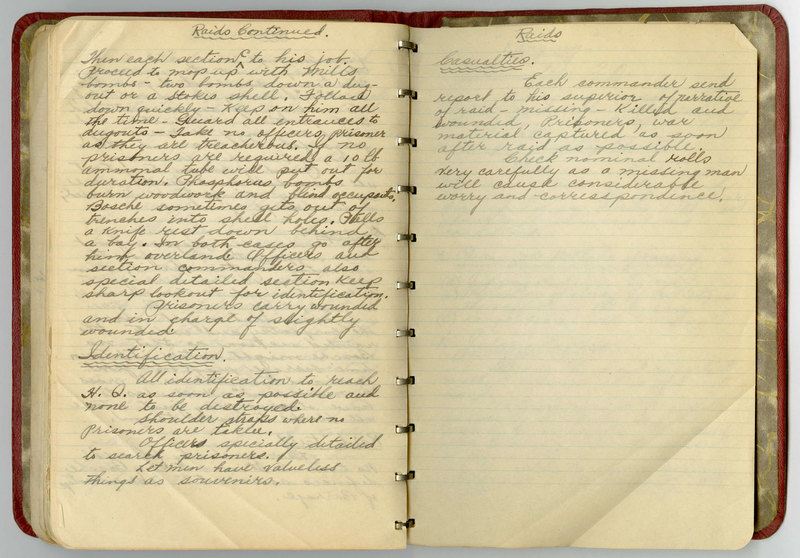 Raids Continued.
Then each section to his job.
Proceed to mop up with Mills
bombs - two bombs down a dug-
out or a Stokes shell. Follow
down quickly - Keep on him all
the time - Guard all entrances to
dugouts - Take no officers prisoner
as they are treacherous. If no
prisoners are required a 10 lb
ammonal tube will put out for
duration. Phosphorus bombs
burn woodwork and blind occupants.
Bosche sometimes gets out of
trenches into shell holes. Pulls
a knife rest down behind
a bay. In both cases go after
him overland. Officers and
section commanders also
special detailed section keep
sharp lookout for identification.
Prisoners carry wounded
and in charge of slightly
wounded.
Identification.
All identification to reach
H.Q. as soon as possible and
none to be destroyed.
Shoulder straps where no
Prisoners are taken.
Officers specially detailed
to search prisoners.
Let men have valueless
things as souvenirs.
Raids
Casualties.
Each commander send
report to his superior of narrative
of raid - missing - Killed and
wounded, Prisoners, war
material captured as soon
after raid as possible.
Check nominal rolls
very carefully as a missing man
will cause considerable
worry and correspondence.